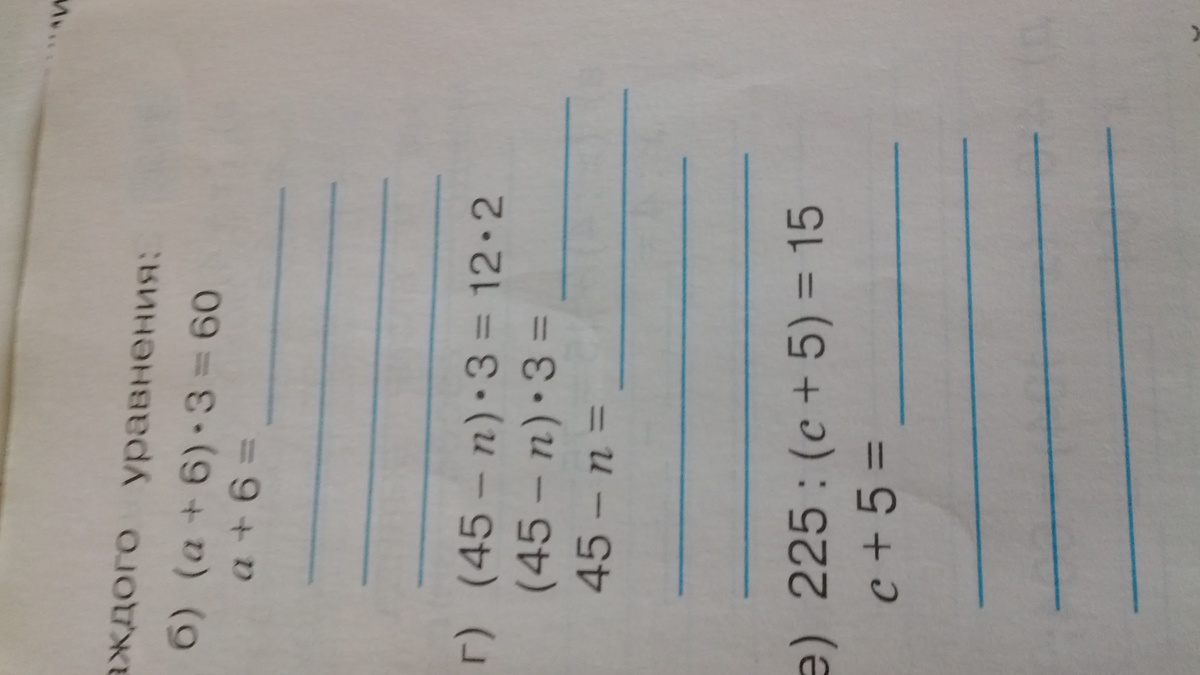 уравнения:
б) (a + 6) • 3 = 60
a + 6 =
г) (45 − n) • 3 = 12 • 2
(45 − n) • 3 =
45 − n =
е) 225 : (c + 5) = 15
c + 5 =